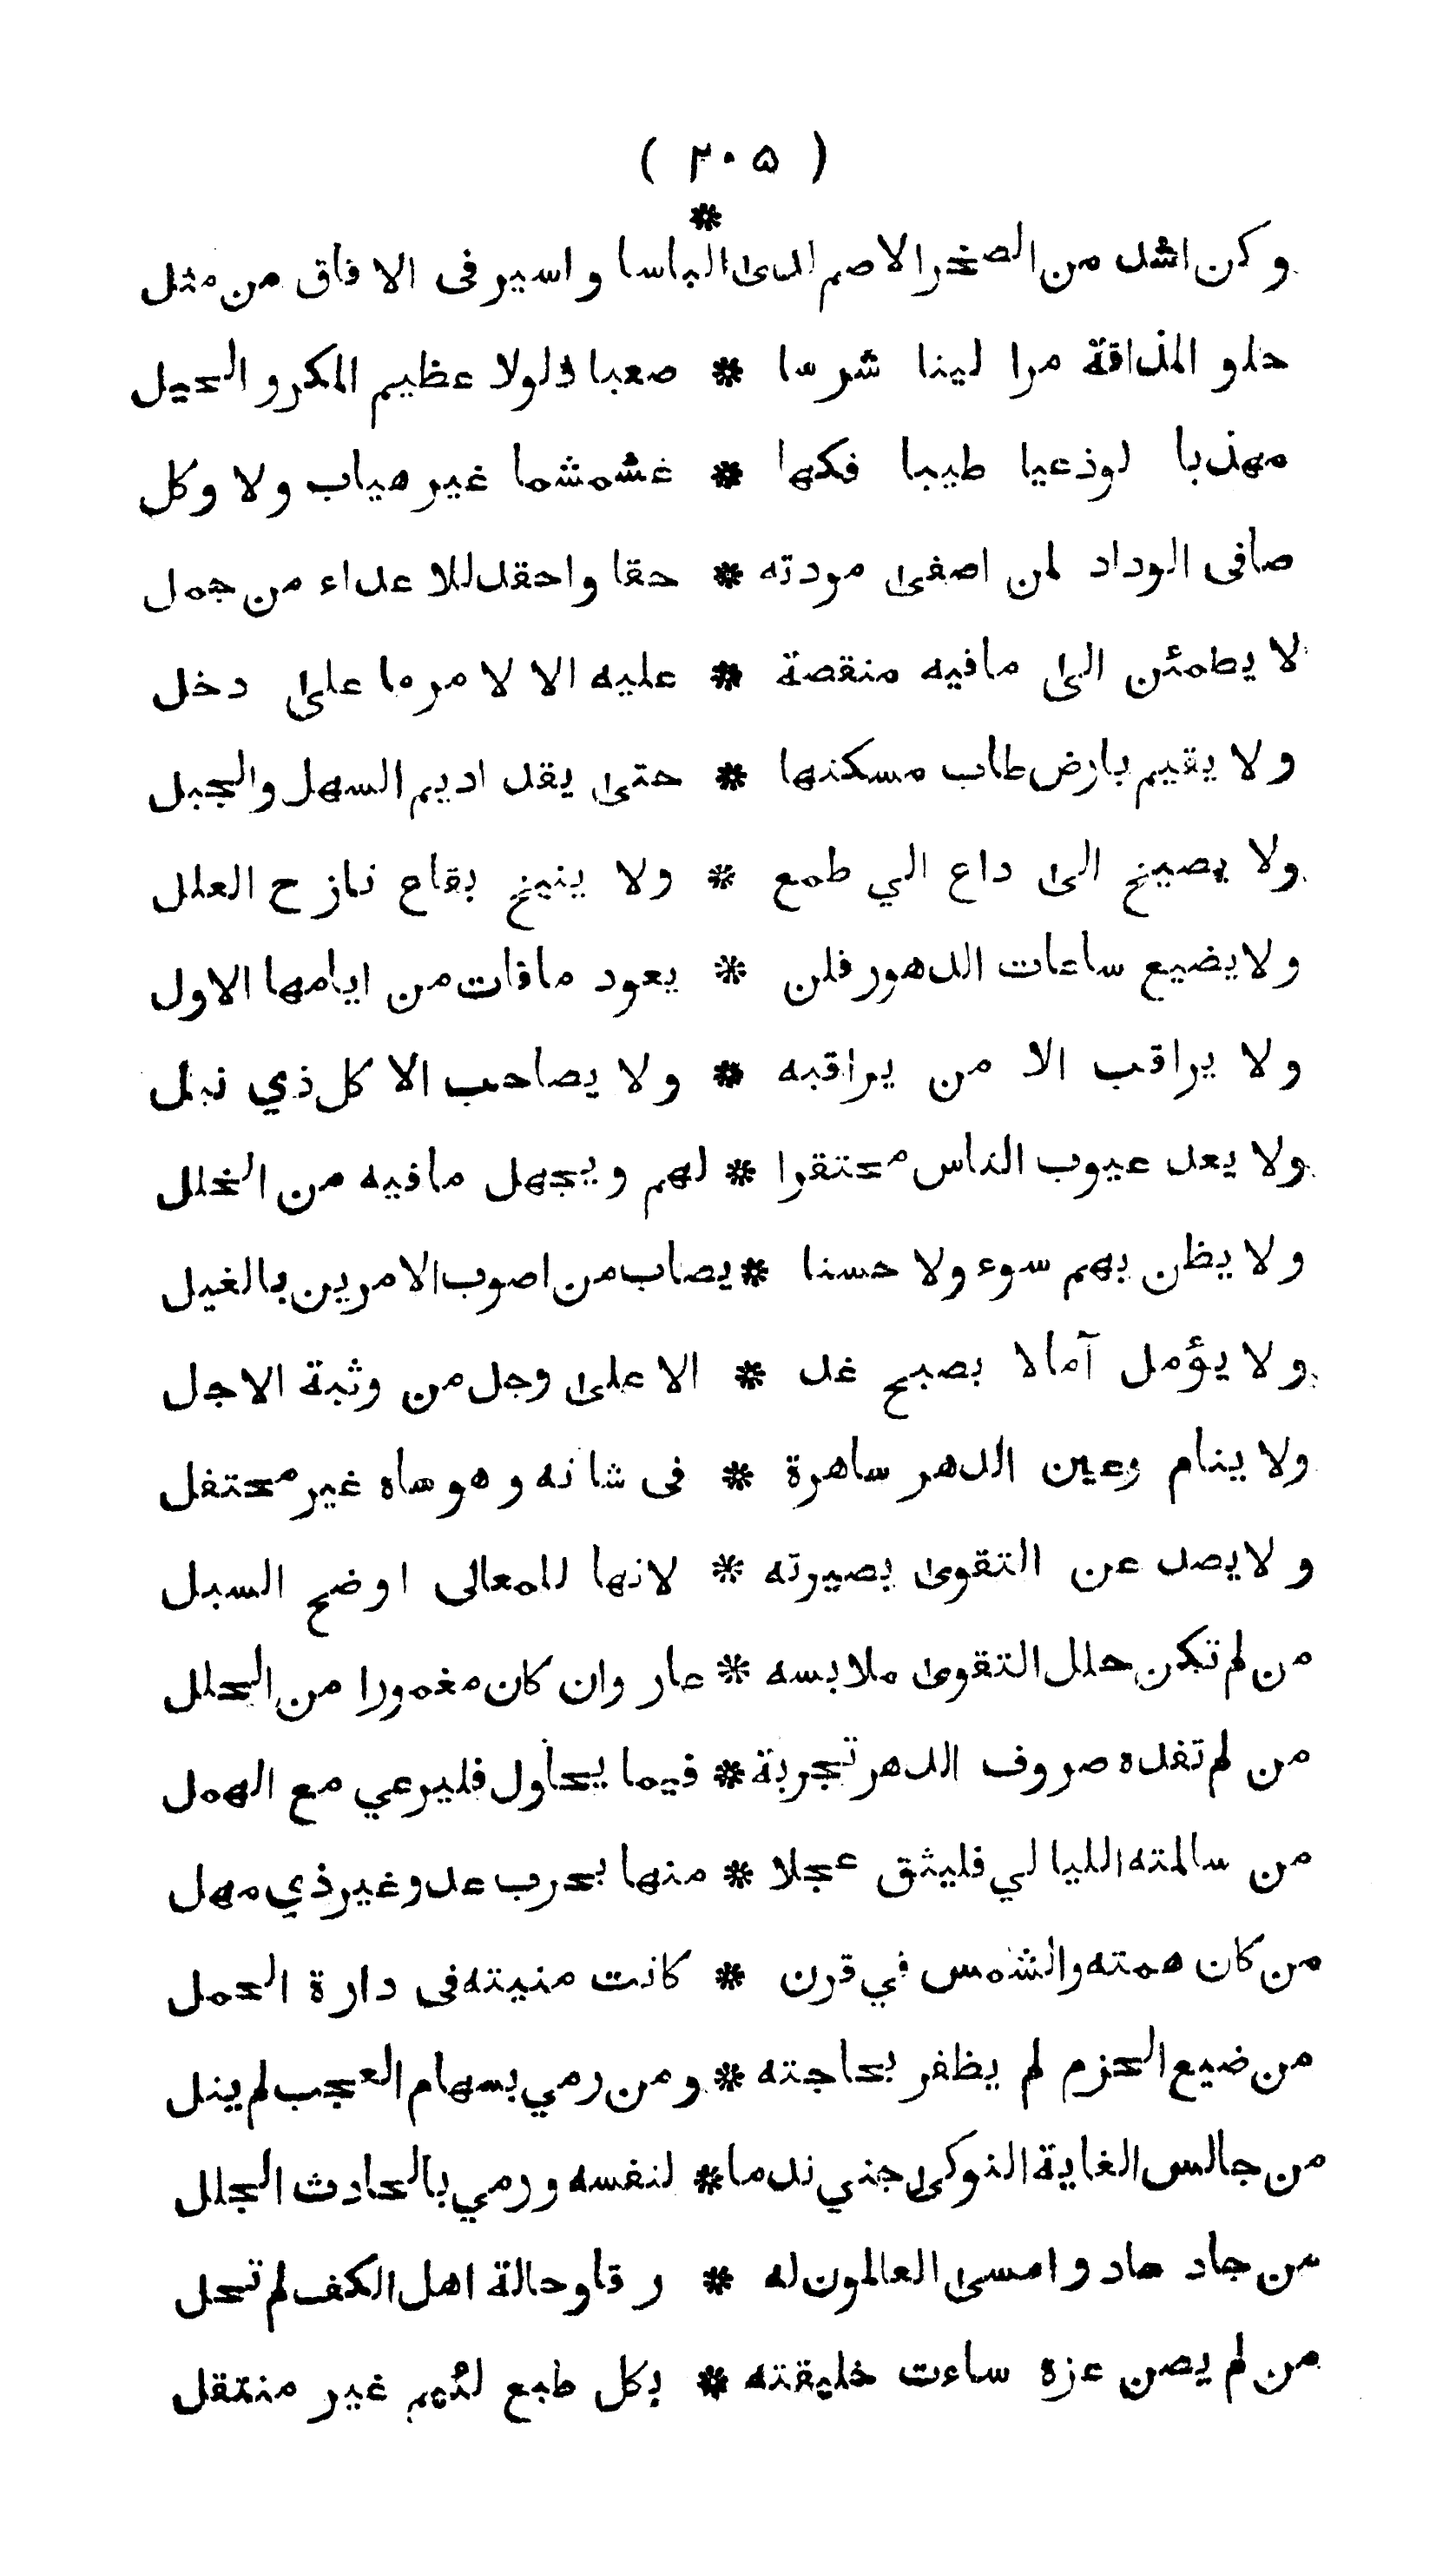 ( ٢٠٥ )
وكن اشد من الصخر الاصم لدى الباسا * واسير فى الافاق من مثل
حلو المذاقة مرا لينا شرسا * صعبا ذلولا عظيم المكر والحيل
مهذبا لوذعيا طيبا فكها * غشمشما غير هياب ولا وكل
صافى الوداد لمن اصفى مودته * حقا واحقد للاعداء من جمل
لا يطمئن الى مافيه منقصة * عليه الا لامر ما على دخل
ولا يقيم بارض طاب مسكنها * حتى يقد اديم السهل والجبل
ولا يصيخ الى داع الي طمع * ولا ينيخ بقاع نازح العلل
ولا يضيع ساعات الدهور فلن * يعود مافات من ايامها الاول
ولا يراقب الا من يراقبه * ولا يصاحب الا كل ذي نبل
ولا يعد عيوب الناس محتقرا * لهم ويجهل مافيه من الخلل
ولا يظن بهم سوء ولا حسنا * يصاب من اصوب الامرين بالغيل
ولا يؤمل آمالا بصبح غد * الا على وجل من وثبة الاجل
ولا ينام وعين الدهر ساهرة * فى شانه وهو ساه غير محتفل
ولا يصد عن التقوى بصيرته * لانها للمعالى اوضح السبل
من لم تكن حلل التقوى ملابسه * عار وان كان مغمورا من الحلل
من لم تفده صروف الدهر تجربة * فيما يحاول فليرعي مع الهمل
من سالمته الليالي فليثق عجلا * منها بحرب عدو غير ذي مهل
من كان همته والشمس في قرن * كانت منيته فى دارة الحمل
من ضيع الحزم لم يظفر بحاجته * ومن رمي بسهام العجب لم ينل
من جالس الغاية النوكى جني ندما * لنفسه ورمي بالحادث الجلل
من جاد ساد وامسى العالمون له * رقا وحالة اهل الكف لم تحل
من لم يصن عزه ساءت خليقته * بكل طبع لئيم غير منتقل